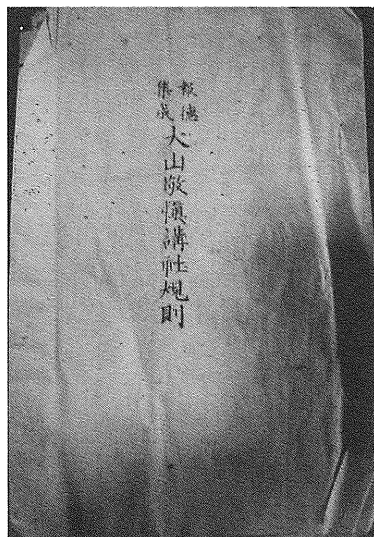 報徳
集成
大山敬慎講社規則